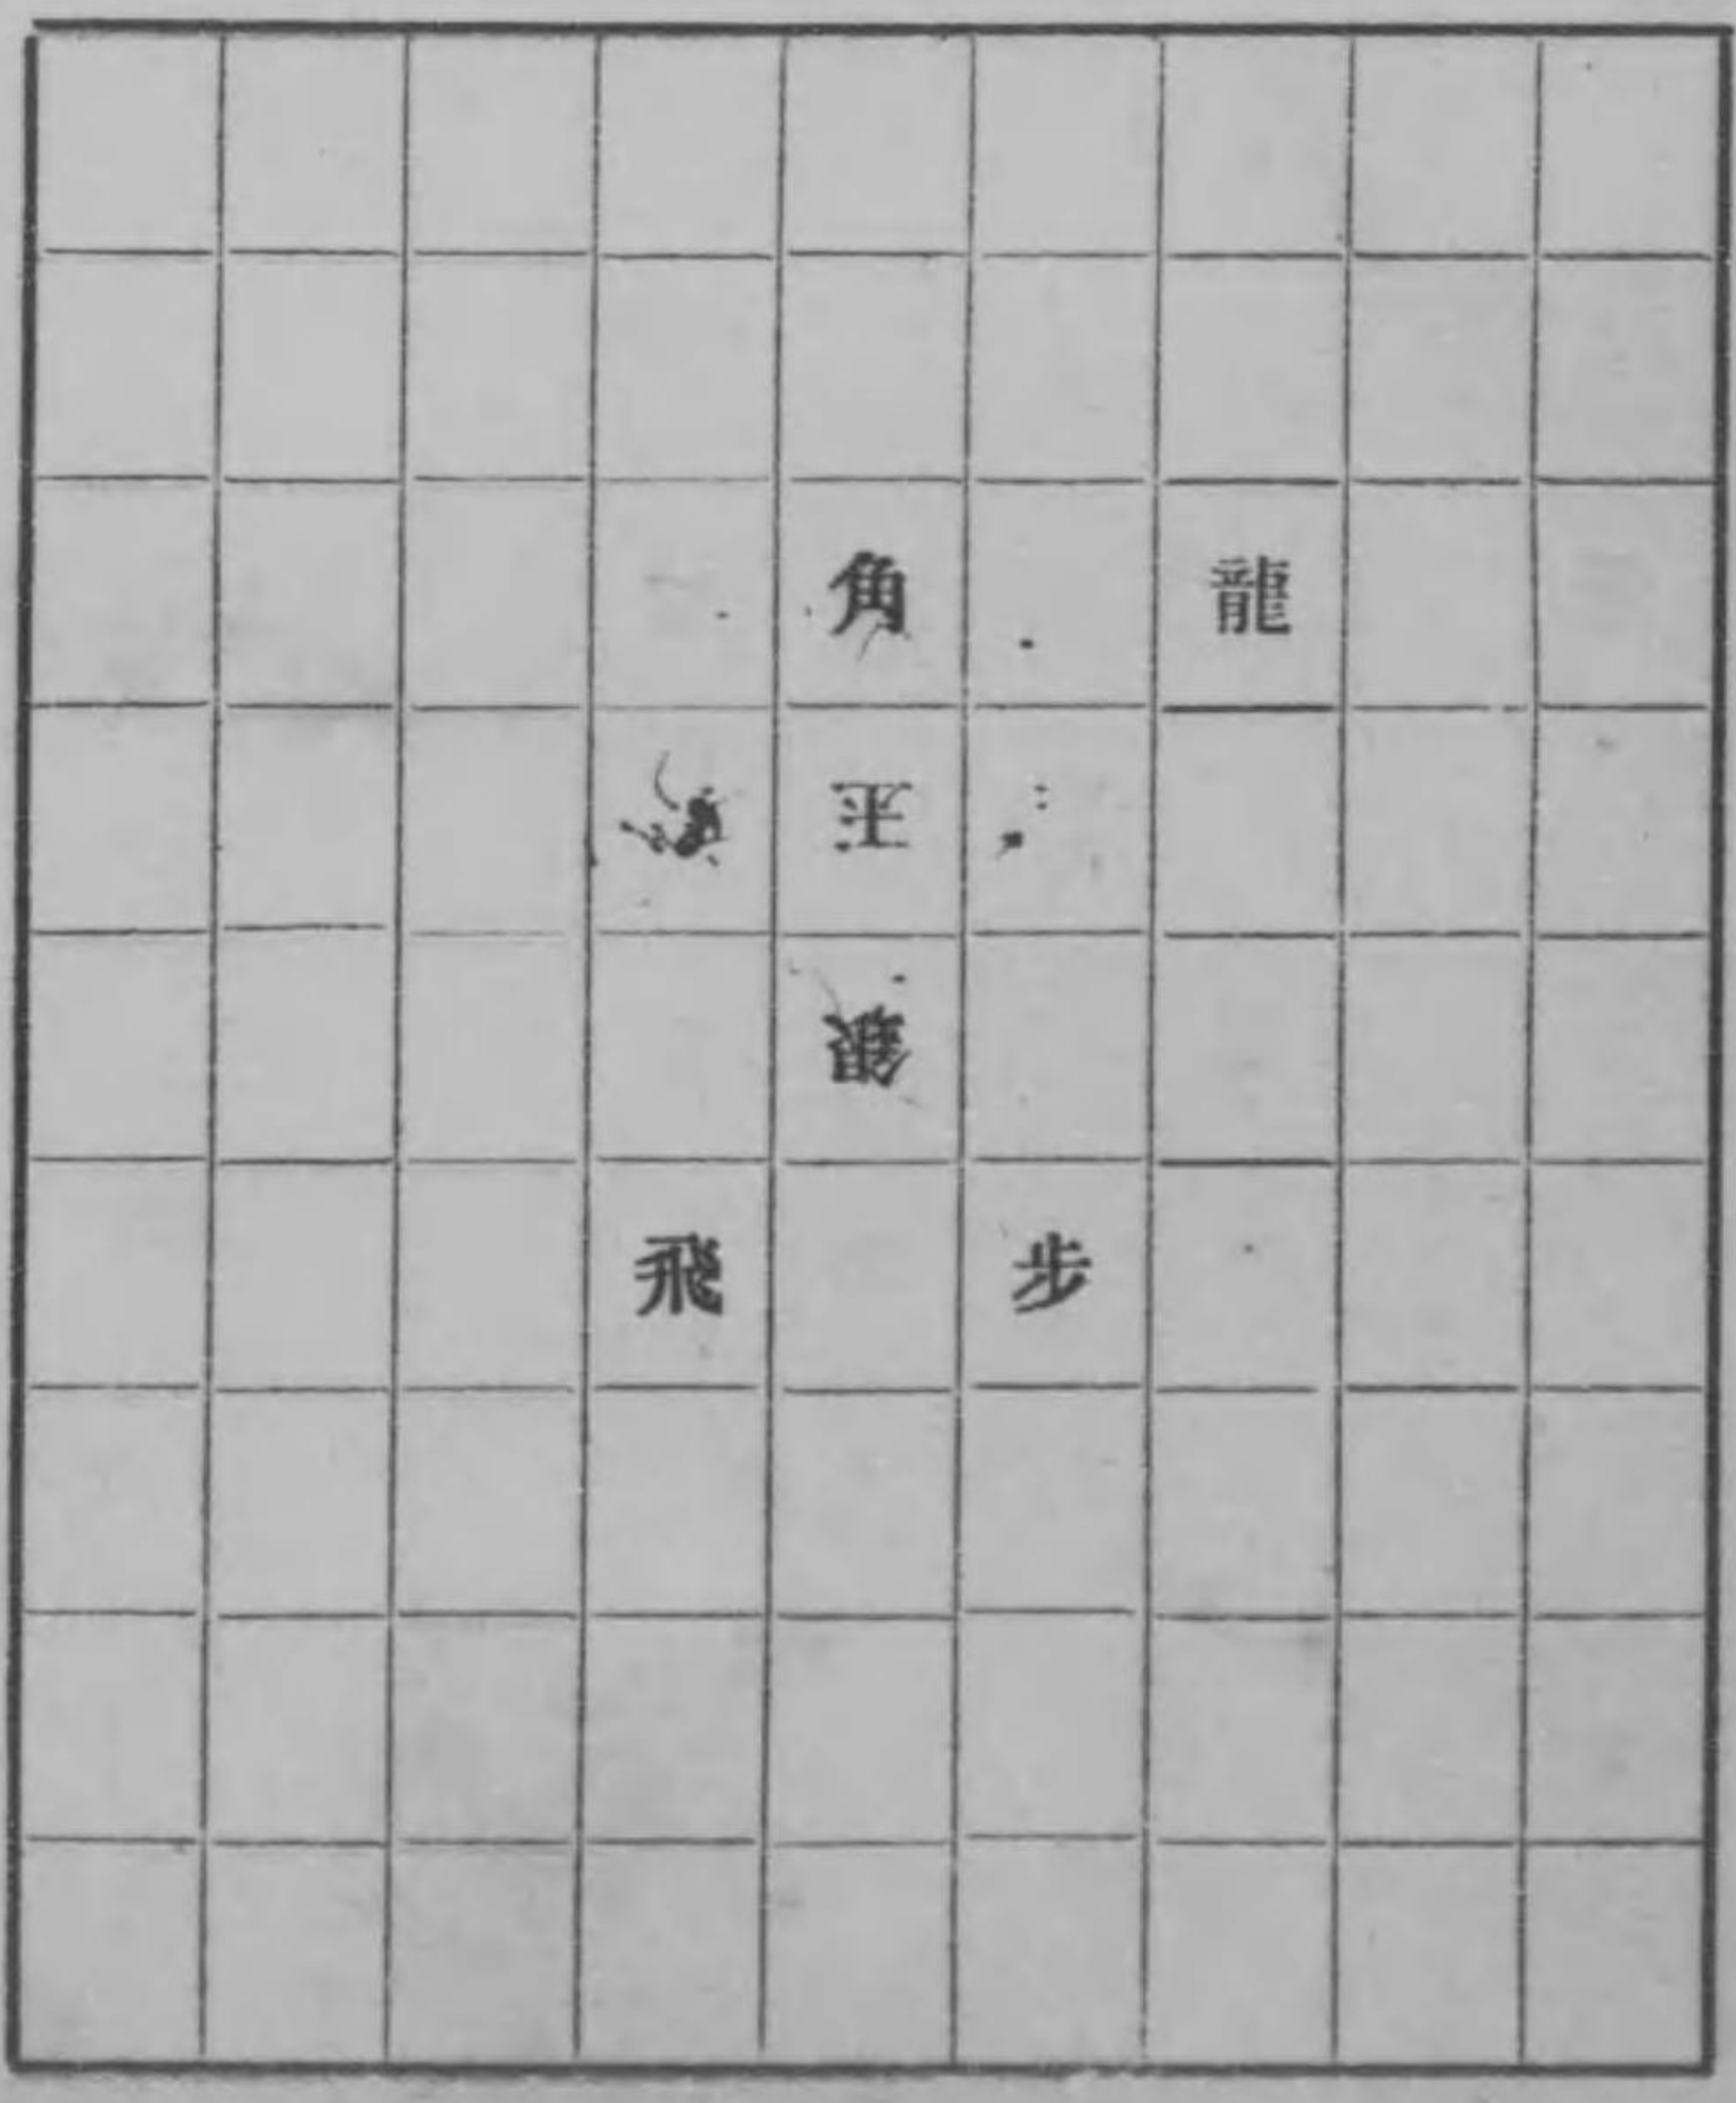 角 龍
王
銀
飛 步